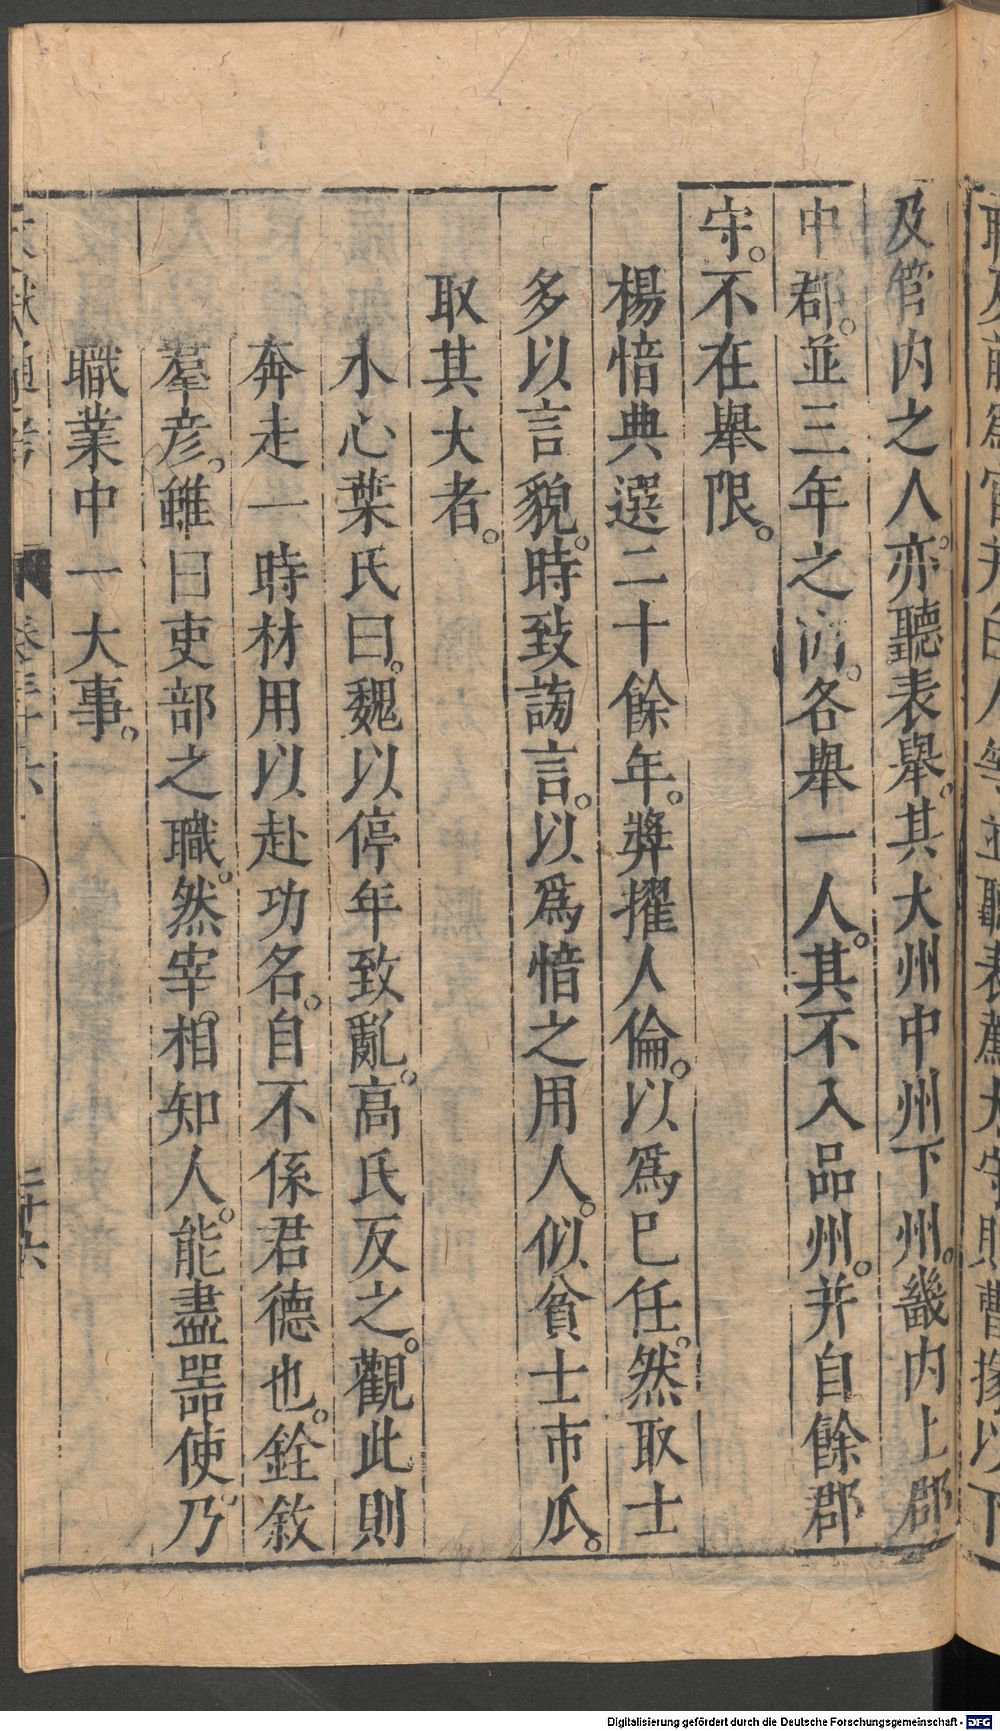 及管内之人。亦聽表舉。其大州中州下州。畿内上郡
中郡。並三年之内。各舉一人。其不入品州。并自餘郡
守。不在舉限。
楊愔典選二十餘年。奬擢人倫。以爲已任。然取士
多以言貌。時致謗言。以爲愔之用人。似貧士市瓜。
取其大者。
水心葉氏曰。魏以停年致亂。高氏反之。觀此則
奔走一時材用以赴功名。自不係君德也。銓敘
羣彦。雖曰吏部之職。然宰相知人。能盡器使。乃
職業中一大事。
文獻通考
卷三十六
二十六
Digitalisierung gefördert durch die Deutsche Forschungsgemeinschaft - DFG